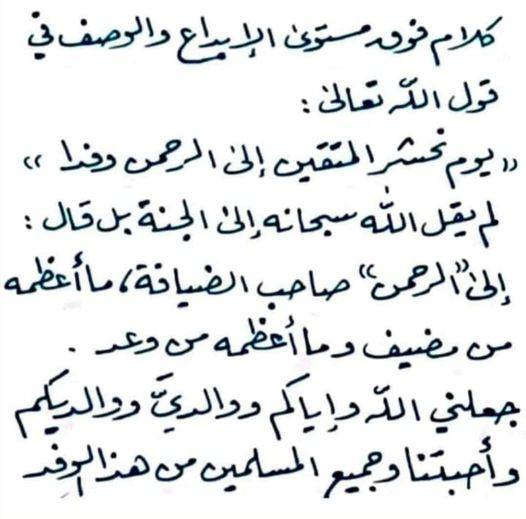 كلام فوق مستوى الإبداع والوصف في
قول الله تعالى :
" يوم نحشر المتقين إلى الرحمن وفدا "
لم يقل الله سبحانه إلى الجنة بل قال :
إلى "الرحمن" صاحب الضيافة، ما أعظمه
من مضيف وما أعظمه من وعد .
جعلني الله وإياكم ووالديَّ ووالديكم
وأحبتنا وجميع المسلمين من هذا الوفد